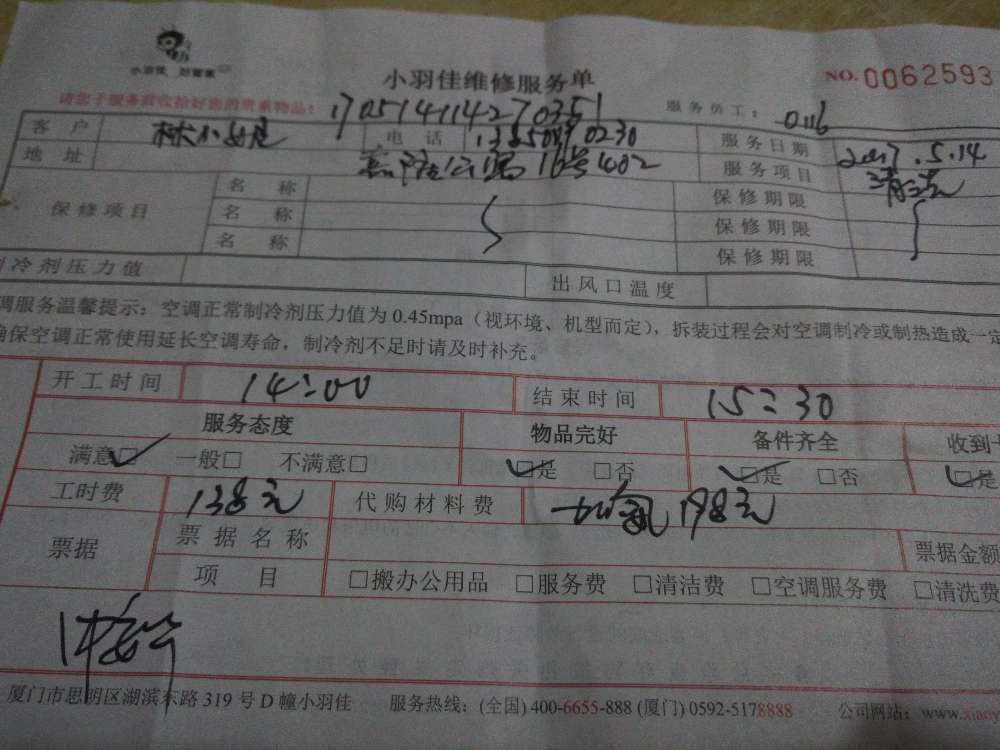 小羽佳 好管家
小羽佳维修服务单
NO. 0062593
请您于服务前收拾好您的贵重物品:
170514114270351
服务员工: 0116
客户 林小姐 电话 服务日期 2017.5.14
地址 公寓 16号402 服务项目
保修项目 名称 保修期限
名称 保修期限
名称 保修期限
冷剂压力值 出风口温度
调服务温馨提示: 空调正常制冷剂压力值为 0.45mpa (视环境、机型而定), 拆装过程会对空调制冷或制热造成一定
确保空调正常使用延长空调寿命, 制冷剂不足时请及时补充。
开工时间 14:00 结束时间 15:30
服务态度 物品完好 备件齐全 收到
满意□ 一般□ 不满意□ □是 □否 □是 □否 □是
工时费 138元 代购材料费 加氟 198元
票据 票据名称 票据金额
项目 □搬办公用品 □服务费 □清洁费 □空调服务费 □清洗费
厦门市思明区湖滨东路 319 号 D 幢小羽佳 服务热线: (全国) 400-6655-888 (厦门) 0592-5178888 公司网站: www.xiaoy